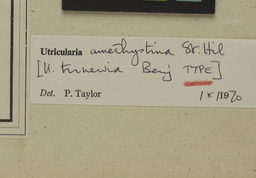 Utricularia amethystina St. Hil
[U. trinervia Benj TYPE]
Det. P. Taylor 1X/1970